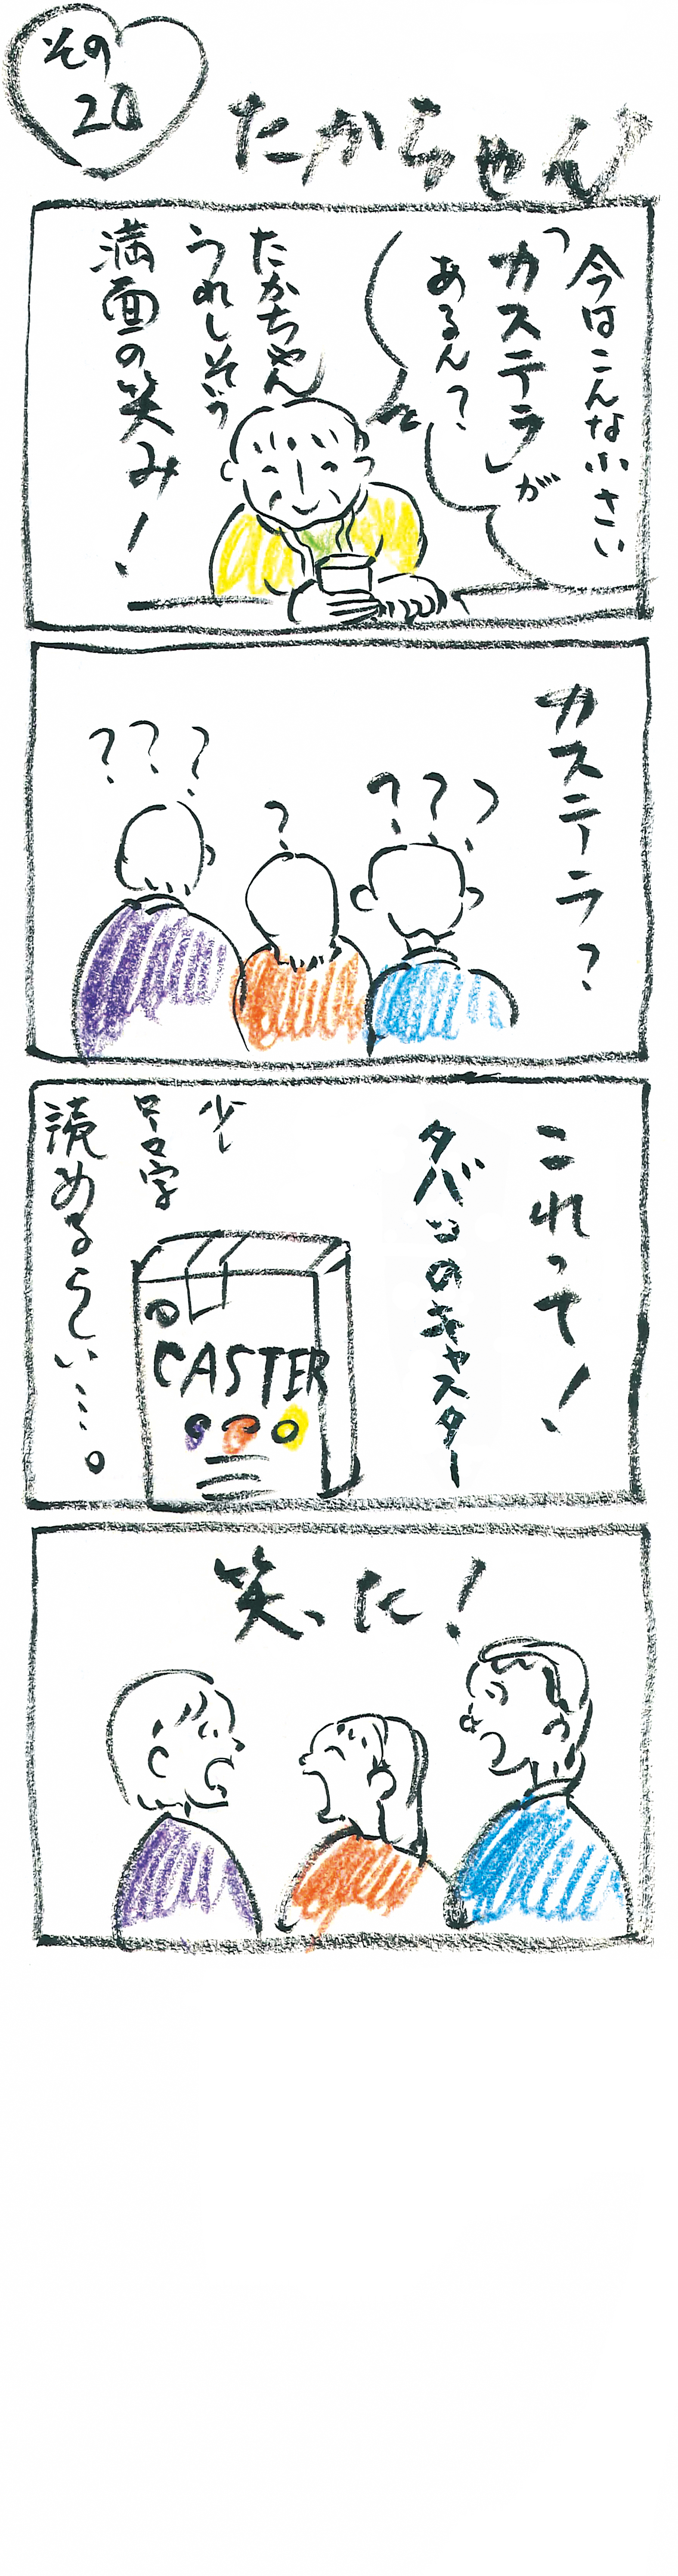 その
20
たかちゃん
今はこんな小さい
「カステラ」が
あるん?
たかちゃん
うれしそう
満面の笑み!
カステーラ?
???
?
???
これって!
タバコのキャスター
少し
ローロ字
読めるらしい…。
CASTER
笑った!